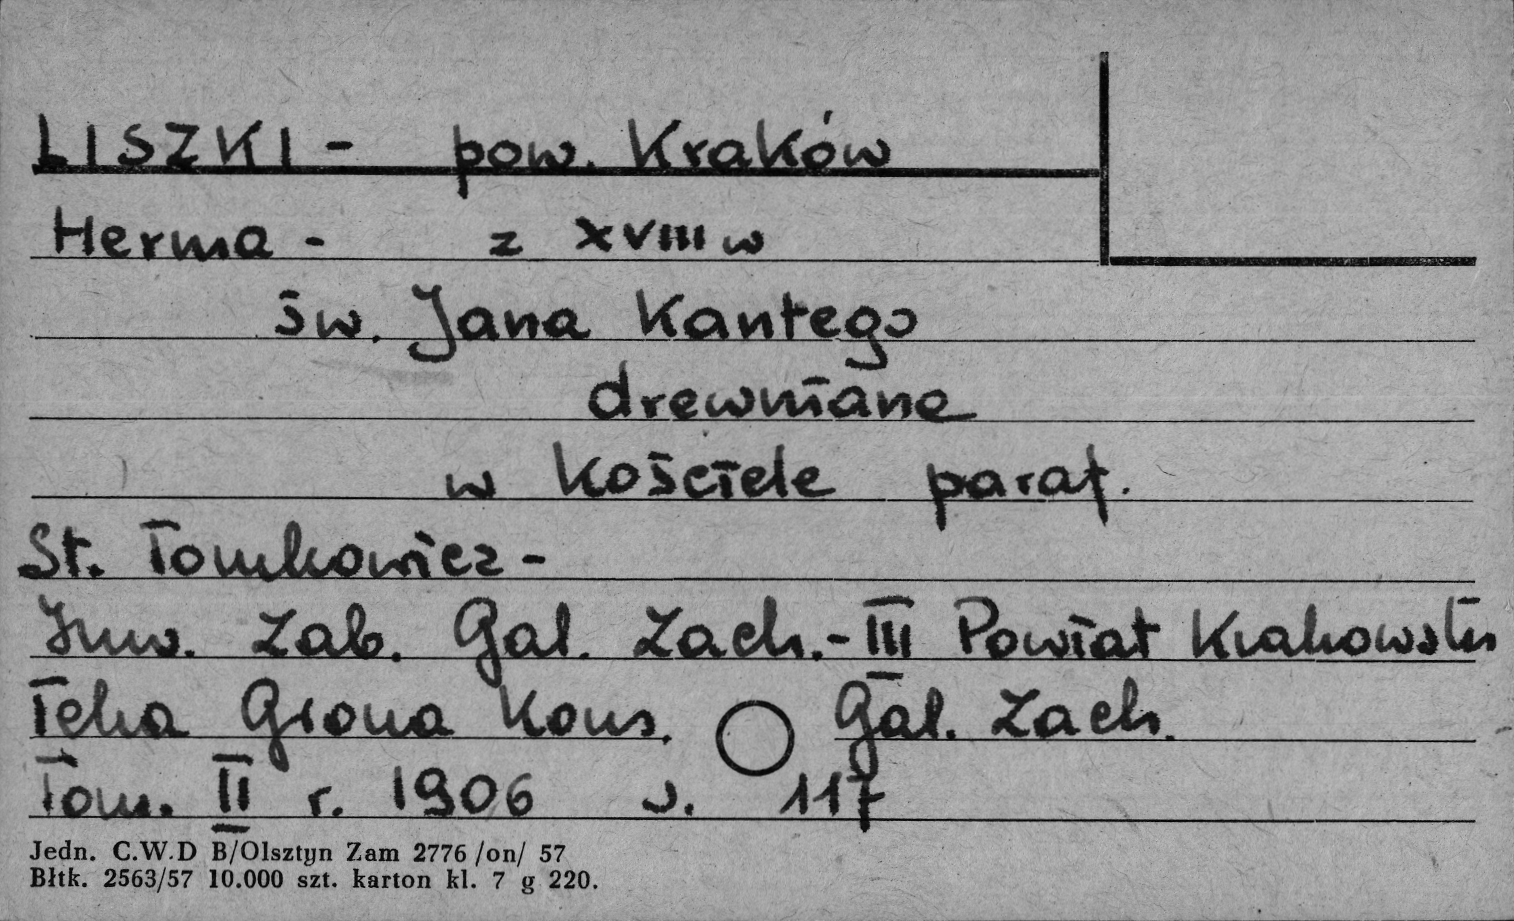 LISZKI - pow. Kraków
Herma - z XVIII w
św. Jana Kantego
drewniane
w kościele paraf.
St. Tomkowicz -
Inw. Zab. Gal. Zach. - III Powiat Krakowski
Teka Grona Kons. Gal. Zach.
Tom. II r. 1906 s. 117
Jedn. C.W.D B/Olsztyn Zam 2776 /on/ 57
Błtk. 2563/57 10.000 szt. karton kl. 7 g 220.